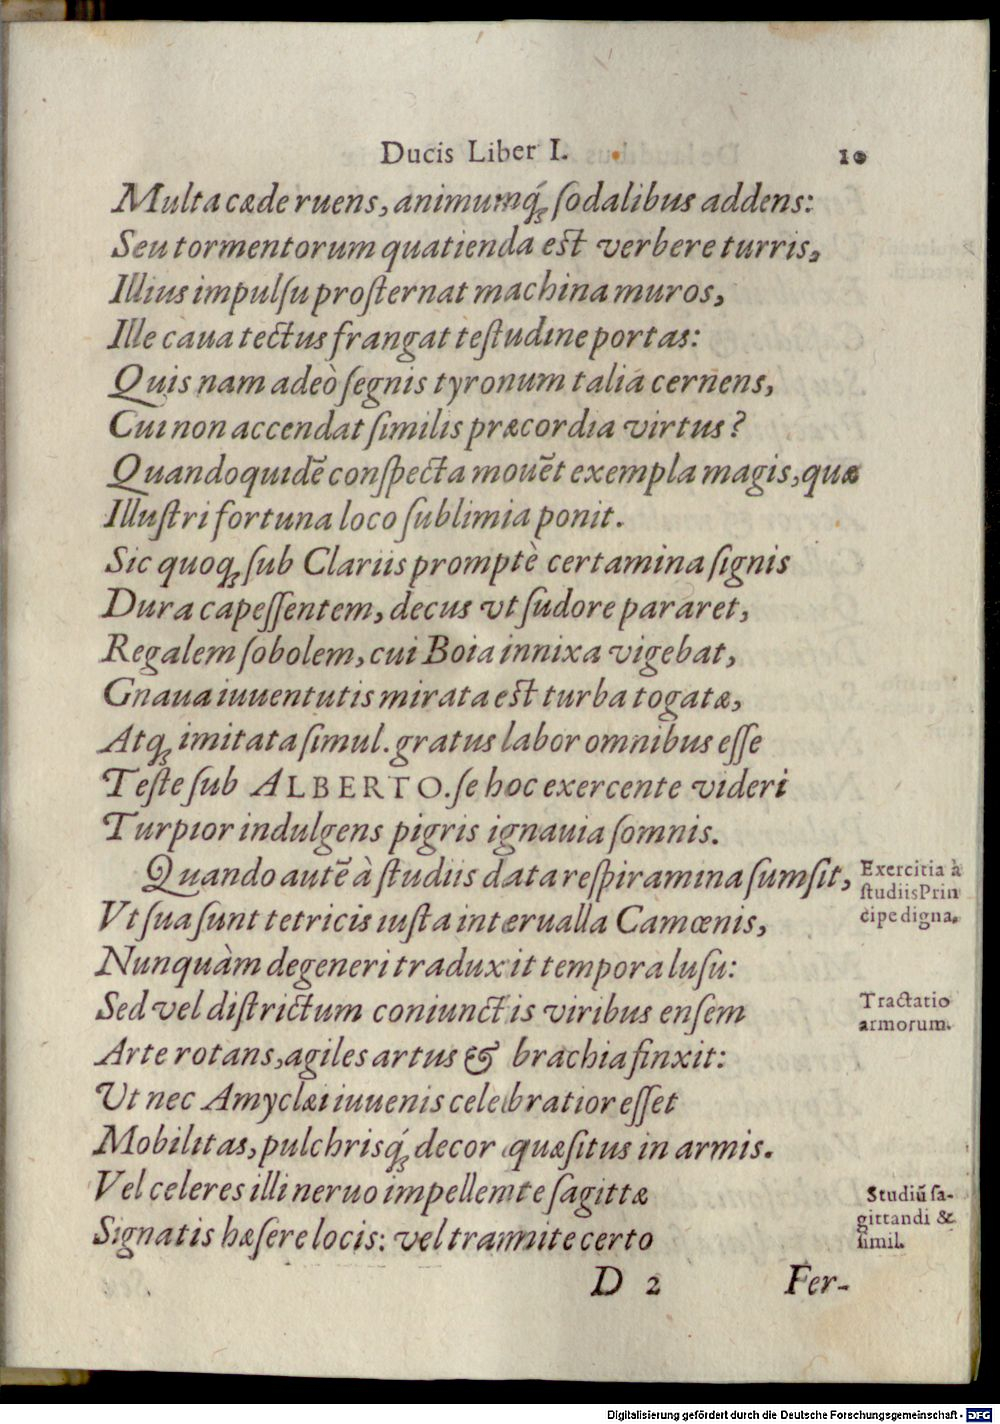 Ducis Liber I. 10
Multa cæde ruens, animumq́; ſodalibus addens:
Seu tormentorum quatienda est verbere turris,
Illius impulſu proſternat machina muros,
Ille caua tectus frangat teſtudine portas:
Quis nam adeò ſegnis tyronum talia cernens,
Cui non accendat ſimilis præcordia virtus?
Quandoquidē conſpecta mouēt exempla magis, quæ
Illuſtri fortuna loco ſublimia ponit.
Sic quoq; ſub Clariis promptè certamina ſignis
Dura capeſſentem, decus vt ſudore pararet,
Regalem ſobolem, cui Boia innixa vigebat,
Gnaua iuuentutis mirata est turba togatæ,
Atq; imitata ſimul. gratus labor omnibus eſſe
Teſte ſub ALBERTO. ſe hoc exercente videri
Turpior indulgens pigris ignauia ſomnis.
Quando autē à ſtudiis data reſpiramina ſumſit,
Vt ſua ſunt tetricis iuſta interualla Camœnis,
Nunquàm degeneri traduxit tempora luſu:
Sed vel diſtrictum coniunctis viribus enſem
Arte rotans, agiles artus & brachia finxit:
Ut nec Amyclæi iuuenis celebratior eſſet
Mobilitas, pulchrisq́; decor quæſitus in armis.
Vel celeres illi neruo impellente ſagittæ
Signatis hæſere locis: vel tramite certo
Exercitia à
ſtudiis Prin
cipe digna.
Tractatio
armorum.
Studiū ſa-
gittandi &
ſimil.
D 2 Fer-
Digitalisierung gefördert durch die Deutsche Forschungsgemeinschaft - DFG